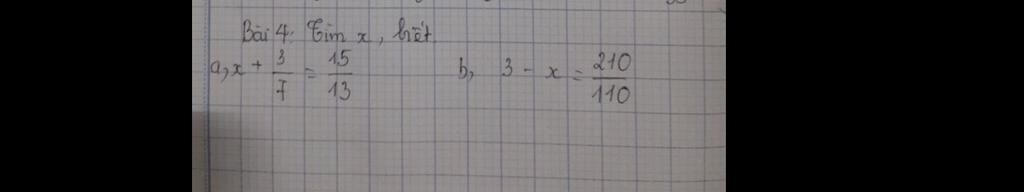 Bài 4: Tìm x, biết
a, x + 3/7 = 15/13 b, 3 - x = 210/110